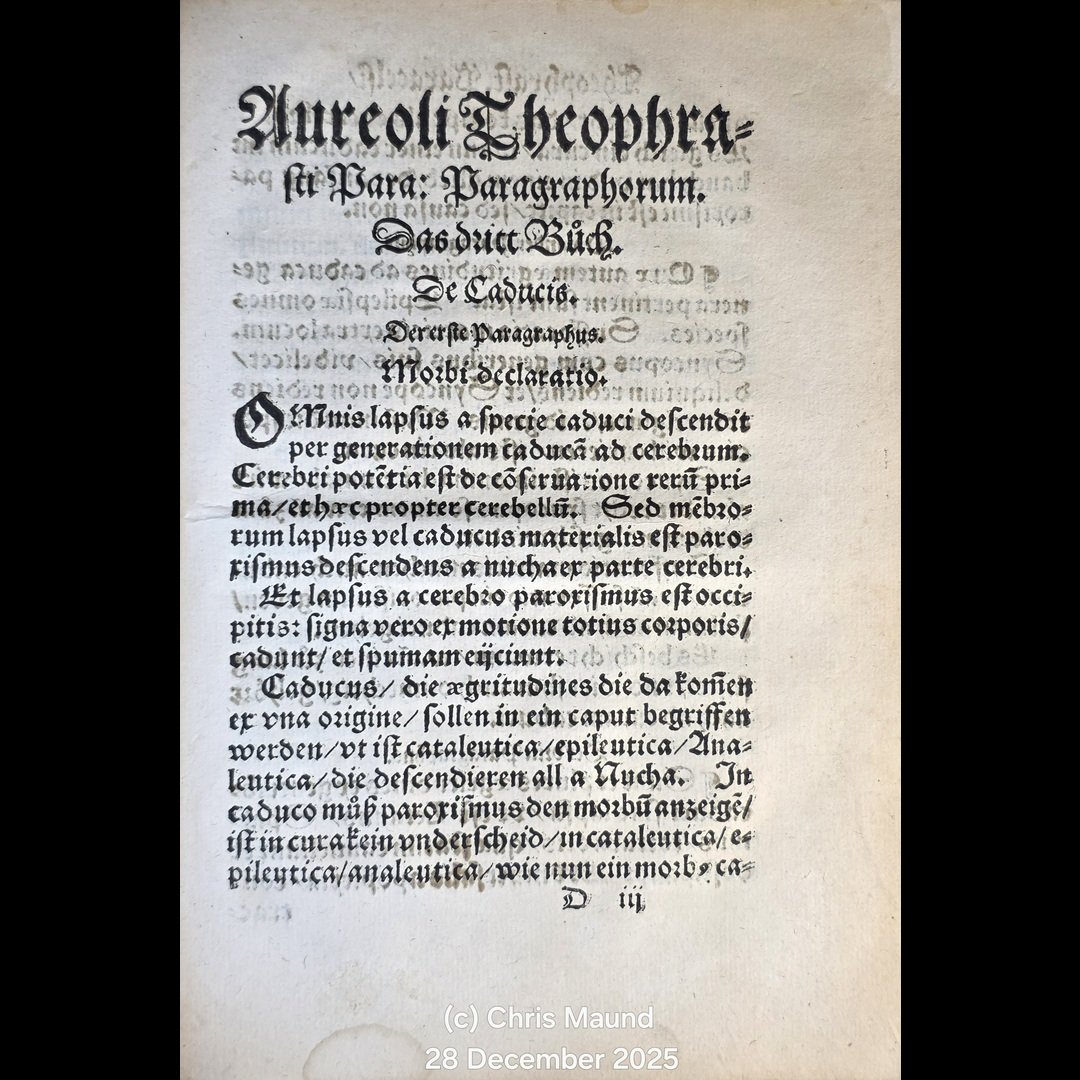 Aureoli Theophra⸗
ſti Para: Paragraphorum.
Das dritt Bůch.
De Caducis.
Der erſte Paragraphus.
Morbi declaratio.
OMnis lapſus a ſpecie caduci deſcendit
per generationem caducã ad cerebrum.
Cerebri potẽtia eſt de cõſeruatione rerũ pri⸗
ma/ et hæc propter cerebellũ. Sed mẽbro⸗
rum lapſus vel caducus materialis eſt paro⸗
xiſmus deſcendens a nucha ex parte cerebri.
Et lapſus a cerebro paroxiſmus eſt occi⸗
pitis: ſigna vero ex motione totius corporis/
cadunt/ et ſpumam eijciunt.
Caducus/ die ægritudines die da kom̃en
ex vna origine/ ſollen in ein caput begriffen
werden/ vt iſt cataleutica/ epileutica/ Ana⸗
leutica/ die deſcendieren all a Nucha. In
caduco můß paroxiſmus den morbũ anzeigẽ/
iſt in cura kein vnderſcheid/ in cataleutica/ e⸗
pileutica/ analeutica/ wie nun ein morbꝰ ca⸗
D iij
(c) Chris Maund
28 December 2025